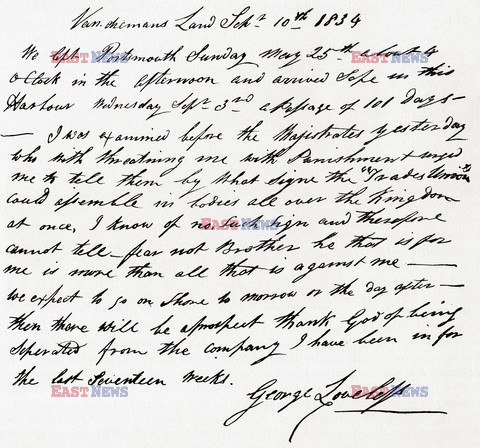 Van diemans Land Sepr 10th 1834
We left Portsmouth Sunday May 25th about 4
oClock in the afternoon and arrived Safe in this
Harbour Wednesday Sepr 3rd a Passage of 101 days —
— I was examined before the Majistrates yesterday
who with threatning me with Punishment urged
me to tell them by what signe the Trades Unionists
could assemble in bodies all over the Kingdom
at once, I know of no such sign and therefore
cannot tell — fear not Brother he that is for
me is more than all that is against me —
we expect to go on Shore to morrow or the day after —
then there will be a prospect thank God of being
Seperated from the company I have been in for
the last Seventeen weeks.
George Loveless
EAST NEWS
EAST NEWS
EAST NEWS
EAST NEWS
EAST NEWS
EAST NEWS
EAST NEWS